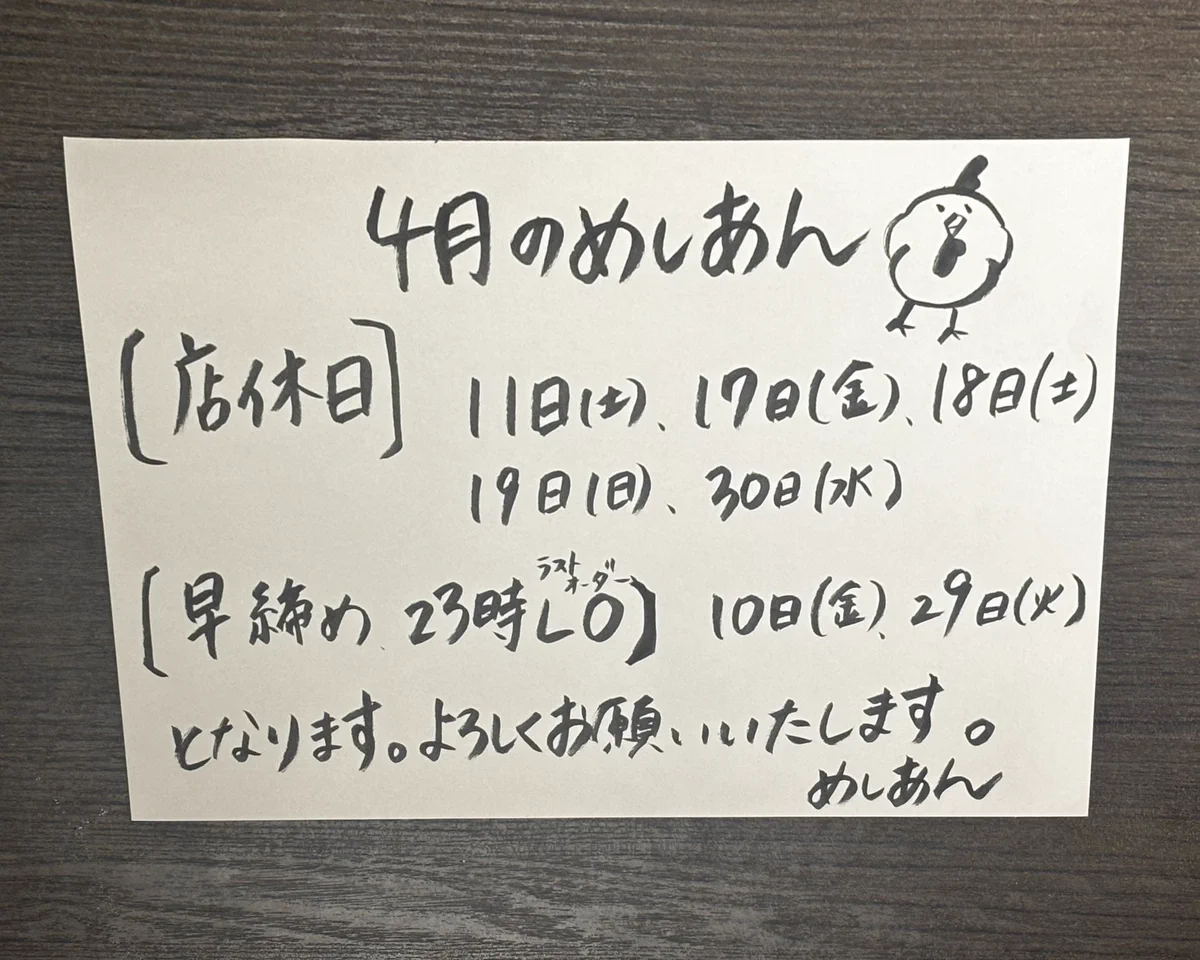 4月のめしあん
[店休日] 11日(土)、17日(金)、18日(土)
19日(日)、30日(水)
[早締め、23時LO] 10日(金)、29日(火)
ラストオーダー
となります。よろしくお願いいたします。
めしあん